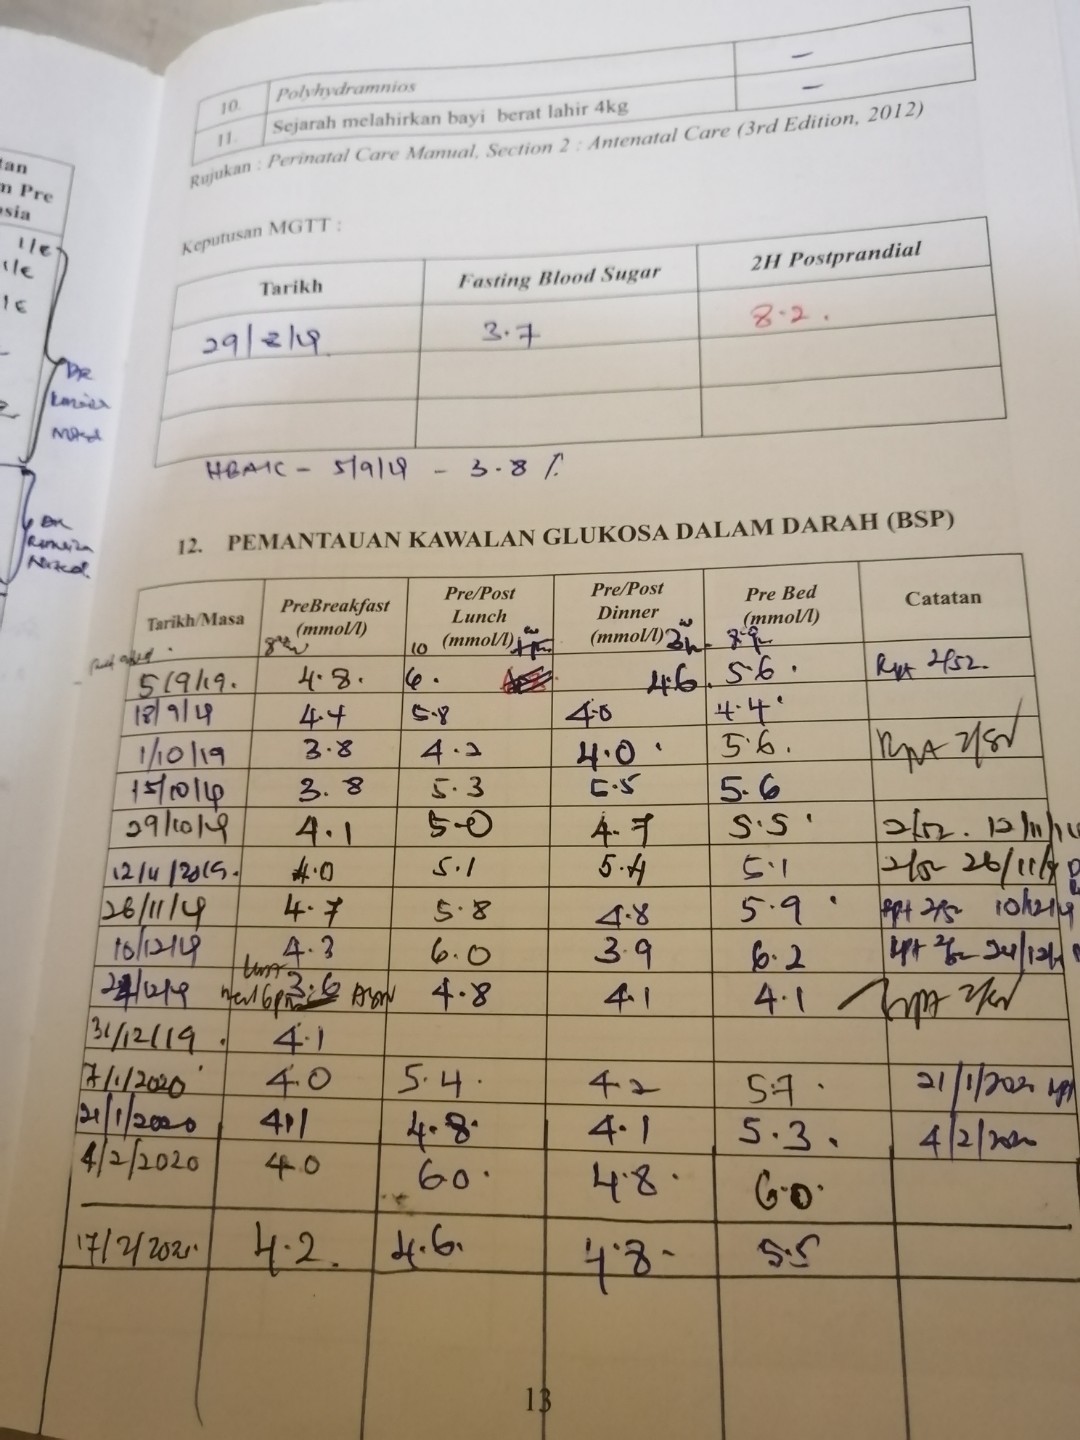 10. Polyhydramnios –
11. Sejarah melahirkan bayi berat lahir 4kg –
Rujukan : Perinatal Care Manual, Section 2 : Antenatal Care (3rd Edition, 2012)
Keputusan MGTT :
Tarikh Fasting Blood Sugar 2H Postprandial
29/8/19 3.7 8.2.
HBA1C – 5/9/19 – 3.8 %
12. PEMANTAUAN KAWALAN GLUKOSA DALAM DARAH (BSP)
Tarikh/Masa PreBreakfast (mmol/l) Pre/Post Lunch (mmol/l) Pre/Post Dinner (mmol/l) Pre Bed (mmol/l) Catatan
5/9/19. 4.8. 6. 4.6. 5.6. Rpt 2/52.
18/9/19 4.4 5.8 4.0 4.4
1/10/19 3.8 4.2 4.0 5.6.
15/10/19 3.8 5.3 5.5 5.6
29/10/19 4.1 5.0 4.7 5.5 2/52. 12/11/19
12/11/2019. 4.0 5.1 5.4 5.1 2/52 26/11/19
26/11/19 4.7 5.8 4.8 5.9 Rpt 2/52 10/12/19
10/12/19 4.3 6.0 3.9 6.2 Rpt 2/52 24/12/19
24/12/19 3.6 4.8 4.1 4.1
31/12/19. 4.1
7/1/2020 4.0 5.4. 4.2 5.7. 21/1/2020
21/1/2020 4.1 4.8. 4.1 5.3. 4/2/2020
4/2/2020 4.0 6.0. 4.8. 6.0.
17/2/2020. 4.2. 4.6. 4.8. 5.5
13